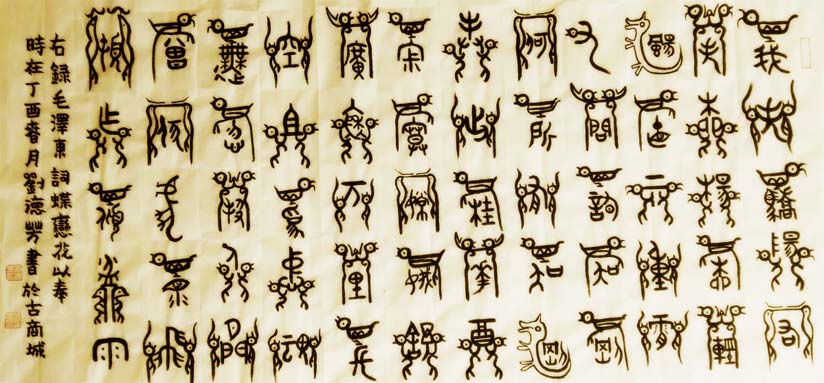 我失驕楊君
失柳楊柳輕
颺直上重霄
九問訊吳剛
何所有吳剛
捧出桂花酒
寂寞嫦娥舒
廣袖萬里長
空且為忠魂
舞忽報人間
曾伏虎淚飛
頓作傾盆雨
右錄毛澤東詞蝶戀花以奉
時在丁酉春月劉德芳書於古商城